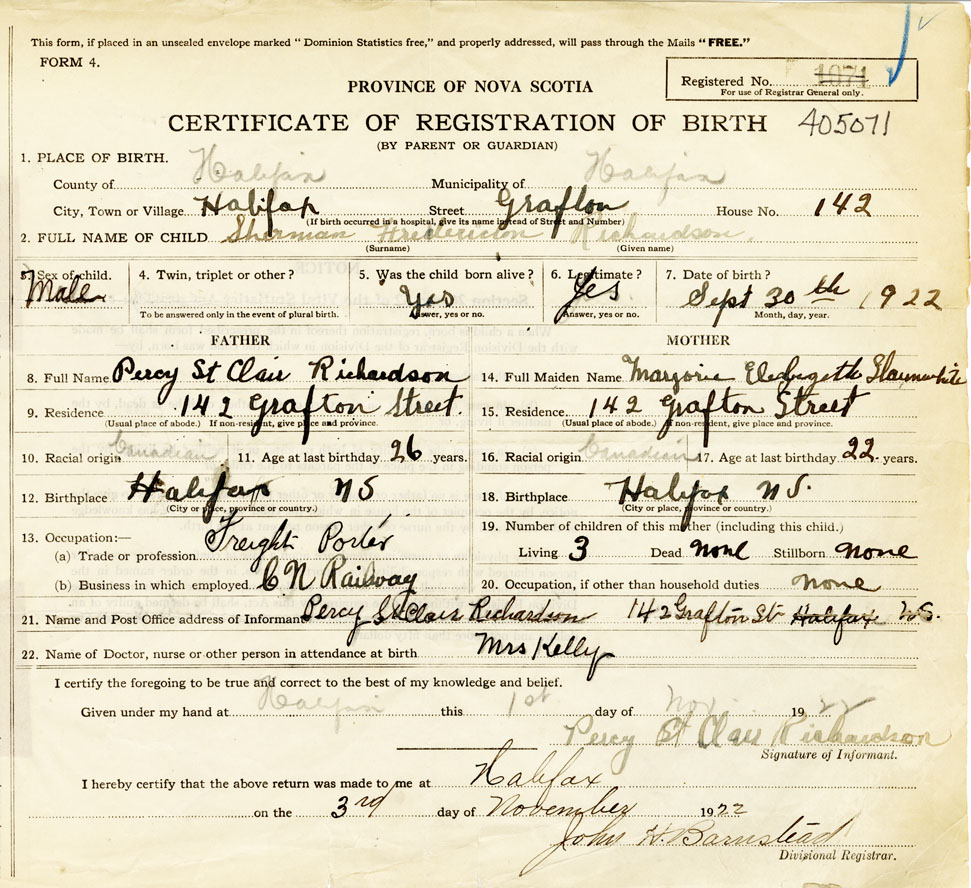 This form, if placed in an unsealed envelope marked "Dominion Statistics free," and properly addressed, will pass through the Mails "FREE."
FORM 4.
Registered No. 1071
For use of Registrar General only.
PROVINCE OF NOVA SCOTIA
CERTIFICATE OF REGISTRATION OF BIRTH 405071
(BY PARENT OR GUARDIAN)
1. PLACE OF BIRTH.
County of Halifax Municipality of Halifax
City, Town or Village Halifax Street Grafton House No. 142
(If birth occurred in a hospital, give its name instead of Street and Number)
2. FULL NAME OF CHILD Sherman Fredericton Richardson.
(Surname) (Given name)
3. Sex of child. 4. Twin, triplet or other? 5. Was the child born alive? 6. Legitimate? 7. Date of birth?
Male Yas Yes Sept 30th 1922
To be answered only in the event of plural birth. Answer, yes or no. Answer, yes or no. Month, day, year.
FATHER MOTHER
8. Full Name Percy St Clair Richardson 14. Full Maiden Name Marjorie
9. Residence 142 Grafton Street. 15. Residence. 142 Grafton Street
(Usual place of abode.) If non-resident, give place and province. (Usual place of abode.) If non-resident, give place and province.
10. Racial origin Canadian 11. Age at last birthday 26 years. 16. Racial origin Canadian 17. Age at last birthday 22 years.
12. Birthplace Halifax NS 18. Birthplace Halifax NS.
(City or place, province or country.) (City or place, province or country.)
13. Occupation:— 19. Number of children of this mother (including this child.)
(a) Trade or profession Freight Porter Living 3 Dead none Stillborn none
(b) Business in which employed C N Railway 20. Occupation, if other than household duties none
21. Name and Post Office address of Informant Percy St Clair Richardson 142 Grafton St Halifax NS.
22. Name of Doctor, nurse or other person in attendance at birth Mrs Kelly
I certify the foregoing to be true and correct to the best of my knowledge and belief.
Given under my hand at Halifax this 1st day of Nov 1922
Percy St Clair Richardson
Signature of Informant.
I hereby certify that the above return was made to me at Halifax
on the 3rd day of November 1922
John H. Barnstead
Divisional Registrar.